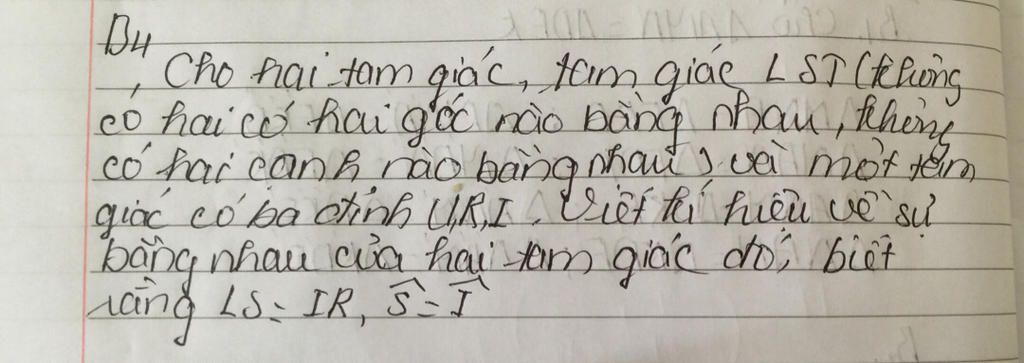 B4
, Cho hai tam giác, tam giác LST (không
có hai có hai góc nào bằng nhau, không
có hai cạnh nào bằng nhau) và một tam
giác có ba đỉnh U,R,I. Viết kí hiệu về sự
bằng nhau của hai tam giác đó, biết
rằng LS = IR, Ŝ = Î